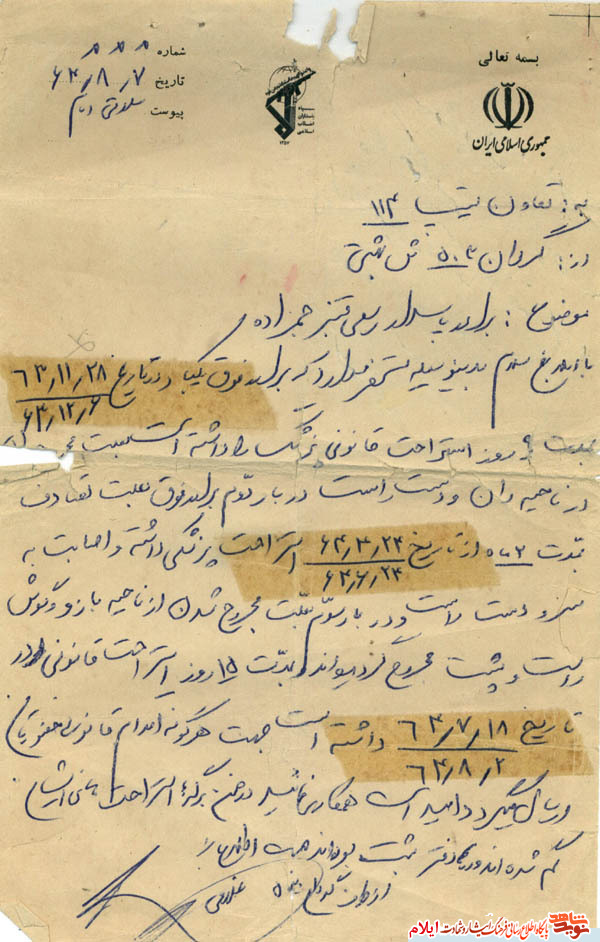 بسمه تعالی
جمهوری اسلامی ایران
سپاه
پاسداران
انقلاب
اسلامی
شماره
تاریخ ۶۴/۸/۷
پیوست
به: تعاون تیپ ۱۱۴
از: گردان ۵۰۳ ش
موضوع: برادر پاسدار قنبر حمزاده
با سلام بدینوسیله میدارد که برادر فوق یکبار در تاریخ ۶۳/۱۱/۲۸
۶۳/۱۲/۶
بمدت ۹ روز استراحت قانونی پزشک را داشته است بعلت
از ناحیه ران و دست راست در بار دوم برادر فوق بعلت تصادف
بمدت ۲ ماه از تاریخ ۶۴/۴/۲۴ استراحت پزشکی داشته و اصابت به
۶۴/۶/۲۴
سر و دست راست و در بار سوم بعلت مجروح شدن از ناحیه بازو و گوش
راست و پشت مجروح گردیده اند بمدت ۱۵ روز استراحت قانونی در
تاریخ ۶۴/۷/۱۸ داشته است جهت هرگونه اقدام قانونی حقوق ایشان
۶۴/۸/۲
ارسال میگردد امید است همکاری نمائید در ضمن برگه استراحت های ایشان
گم شده اند و در دفتر ثبت بوده اند
از طرف گردان
نوید شاهد
پایگاه اطلاع رسانی فرهنگ ایثار و شهادت ایلام